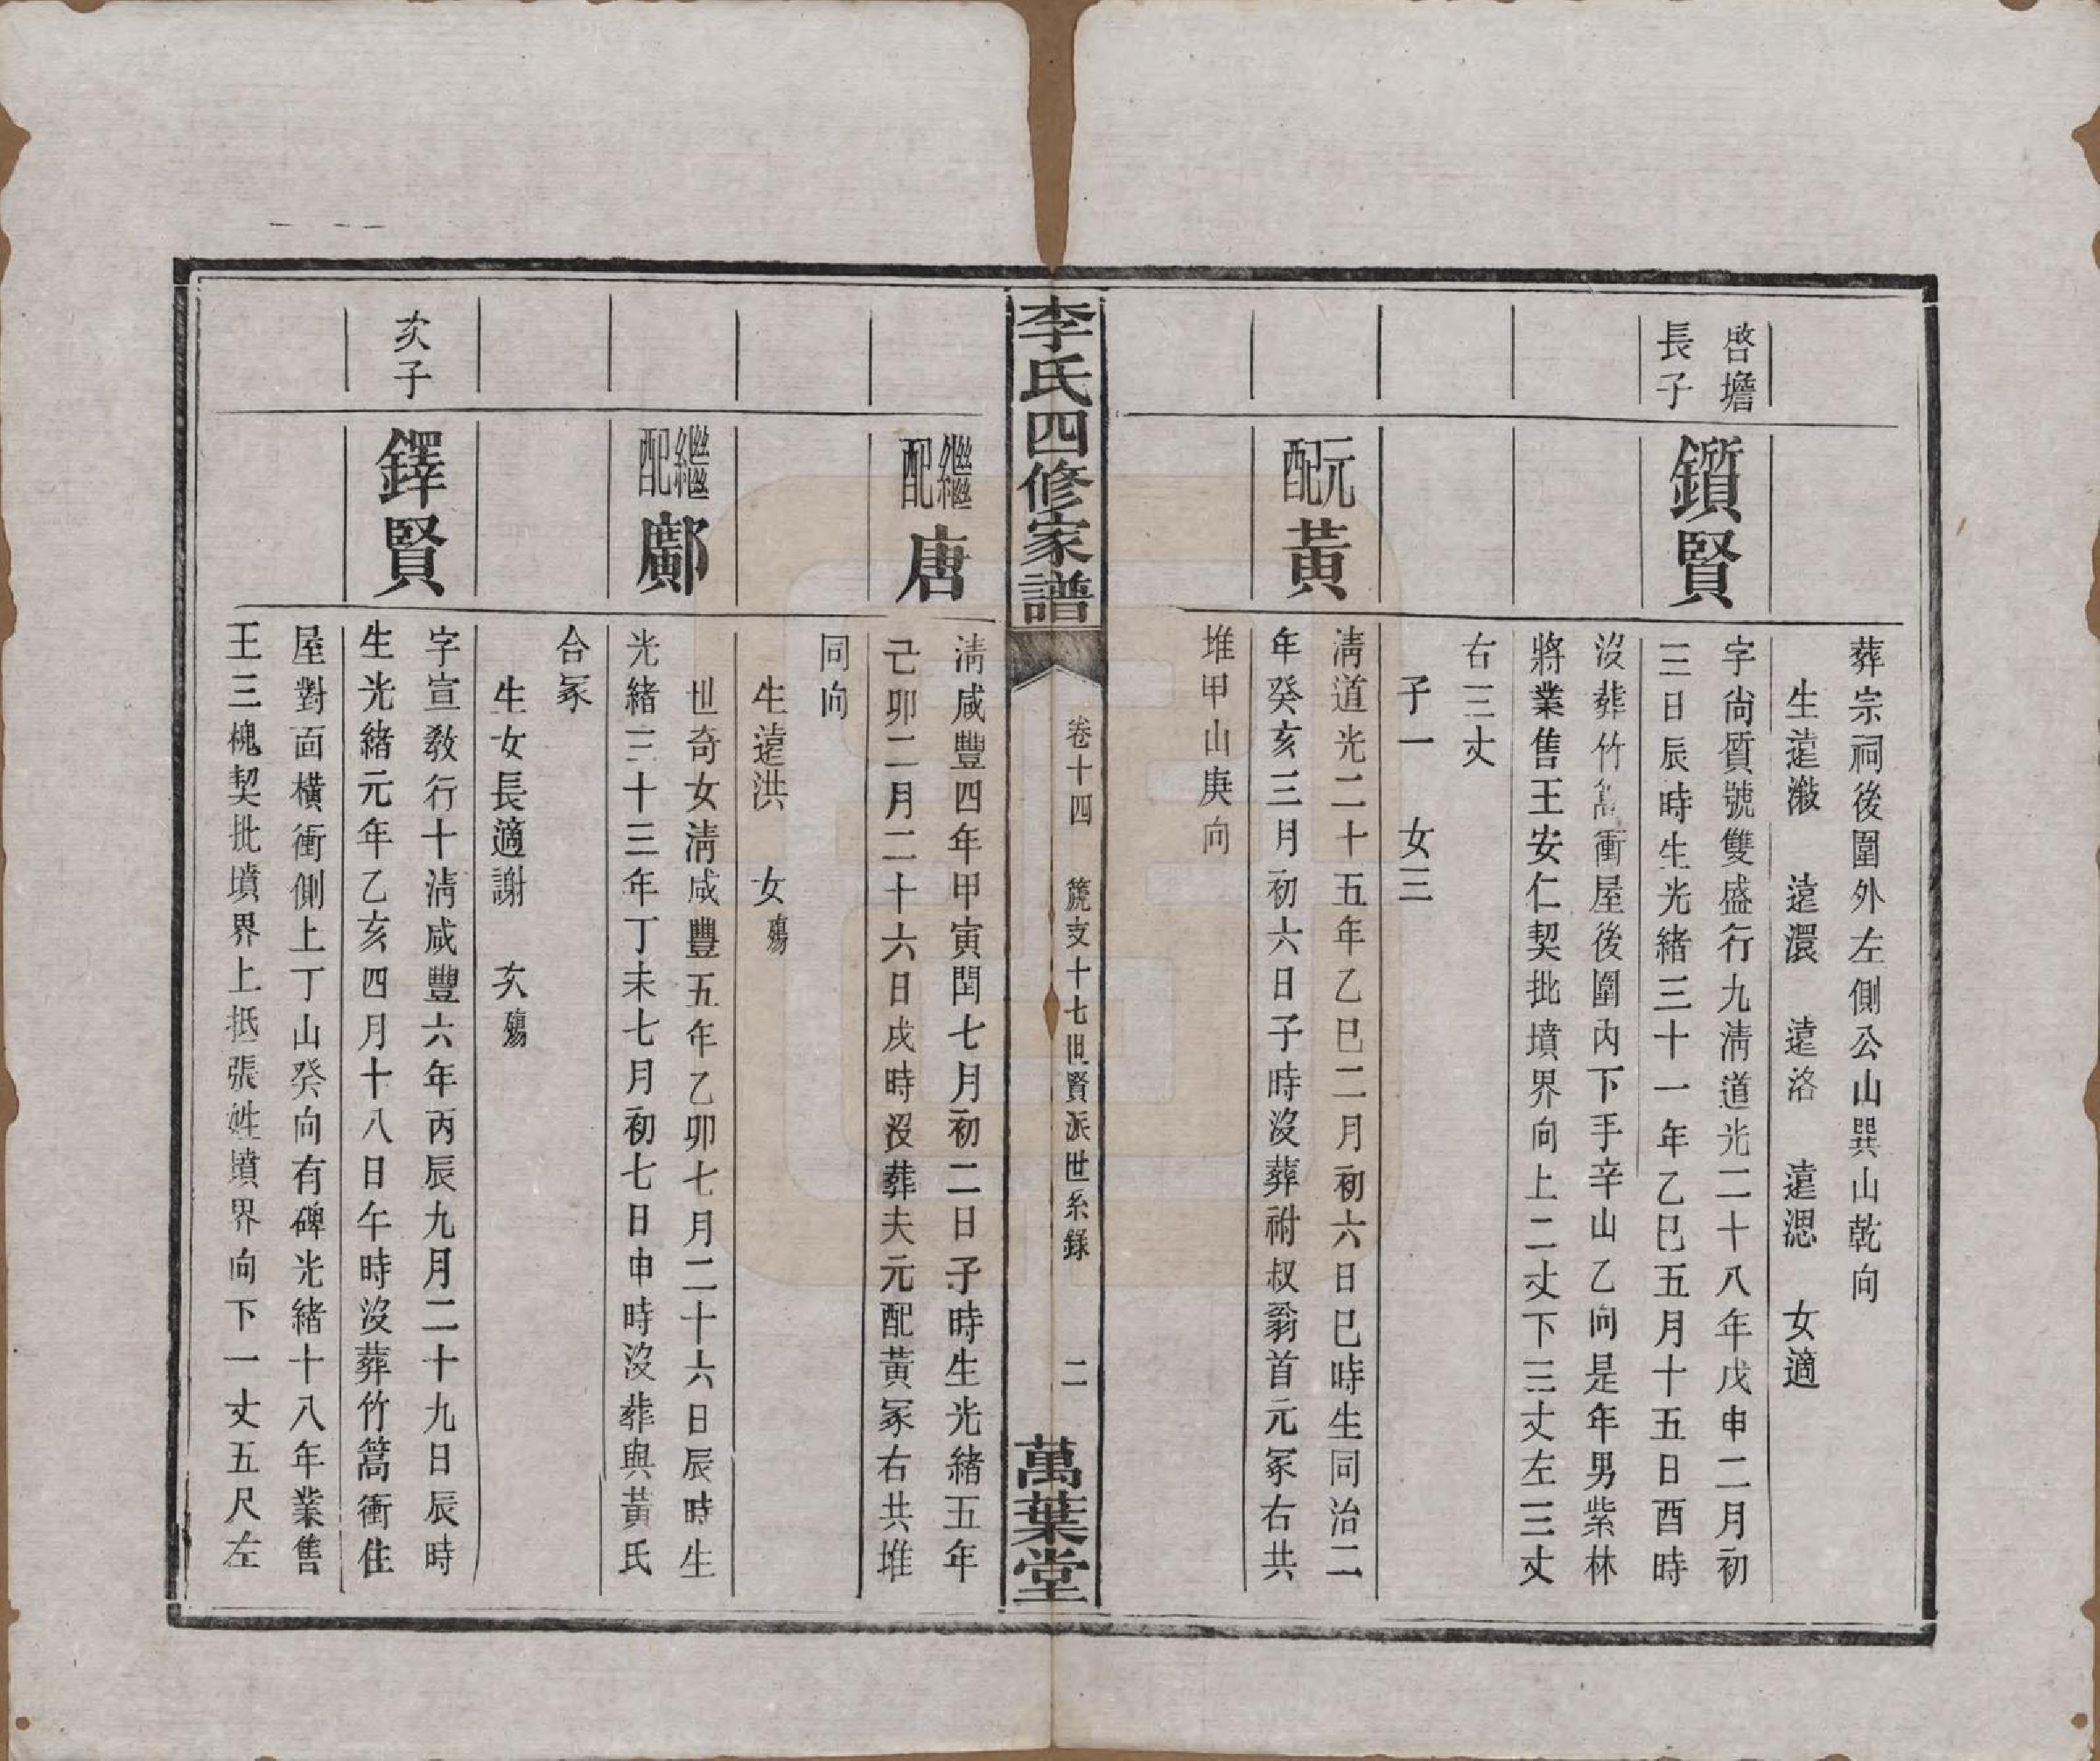 葬宗祠後圍外左側公山巽山乾向
生遠澂　遠澴　遠洛　遠淴　女適
啓擔
長子
鑕賢
字尙質號雙盛行九淸道光二十八年戊申二月初
三日辰時生光緒三十一年乙巳五月十五日酉時
沒葬竹蒿衝屋後圍內下手辛山乙向是年男紫林
將業售王安仁契批墳界向上二丈下三丈左三丈
右三丈
子一　女三
元配
黃
淸道光二十五年乙巳二月初六日巳時生同治二
年癸亥三月初六日子時沒葬祔叔翁首元冢右共
堆甲山庚向
李氏四修家譜
卷十四　箎支十七世賢派世系錄　二
萬葉堂
繼配
唐
淸咸豐四年甲寅閏七月初二日子時生光緒五年
己卯二月二十六日戌時沒葬夫元配黃冢右共堆
同向
生遠洪　女殤
繼配
鄺
世奇女淸咸豐五年乙卯七月二十六日辰時生
光緒三十三年丁未七月初七日申時沒葬與黃氏
合冢
生女長適謝　次殤
次子
鐸賢
字宣敎行十淸咸豐六年丙辰九月二十九日辰時
生光緒元年乙亥四月十八日午時沒葬竹蒿衝住
屋對面橫衝側上丁山癸向有碑光緒十八年業售
王三槐契批墳界上抵張姓墳界向下一丈五尺左